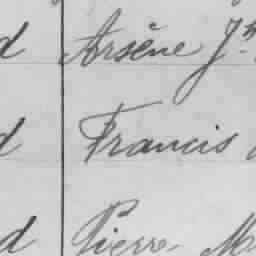 d Arsène Jn
d Francis
d Pierre M